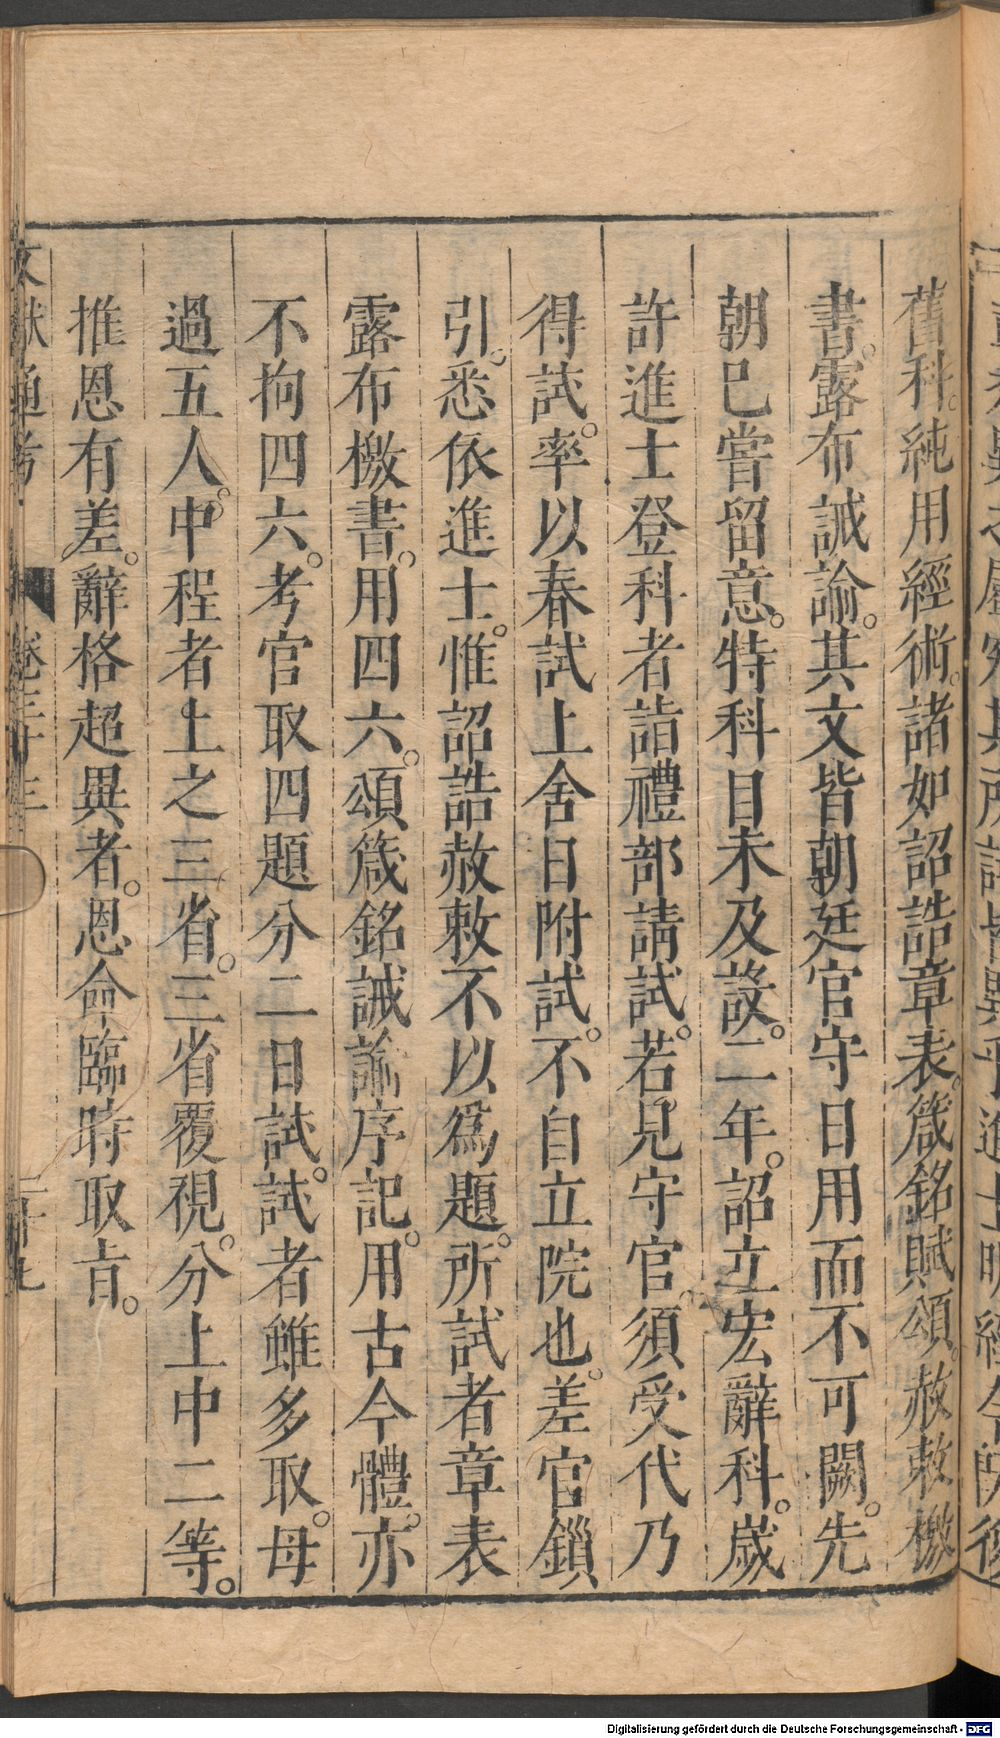 舊科。純用經術。諸如詔誥章表。箴銘賦頌。赦敕檄
書。露布誡諭。其文皆朝廷官守日用而不可闕。先
朝已嘗留意。特科目未及設。二年。詔立宏辭科。歲
許進士登科者詣禮部請試。若見守官。須受代乃
得試。率以春試上舍日附試。不自立院也。差官鎖
引。悉依進士。惟詔誥赦敕不以爲題。所試者章表
露布檄書。用四六。頌箴銘誡諭序記。用古今體。亦
不拘四六。考官取四題分二日試。試者雖多取。毋
過五人。中程者上之三省。三省覆視。分上中二等。
推恩有差。辭格超異者。恩命臨時取旨。
文獻通考
Digitalisierung gefördert durch die Deutsche Forschungsgemeinschaft - DFG